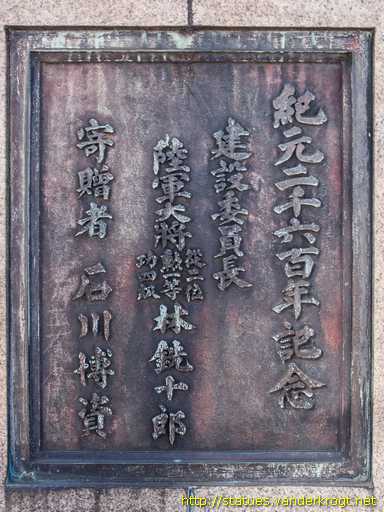 紀元二千六百年記念
建設委員長
陸軍大将 従二位 勲一等 功四級 林銑十郎
寄贈者 石川博資
http://statues.vanderkrogt.net